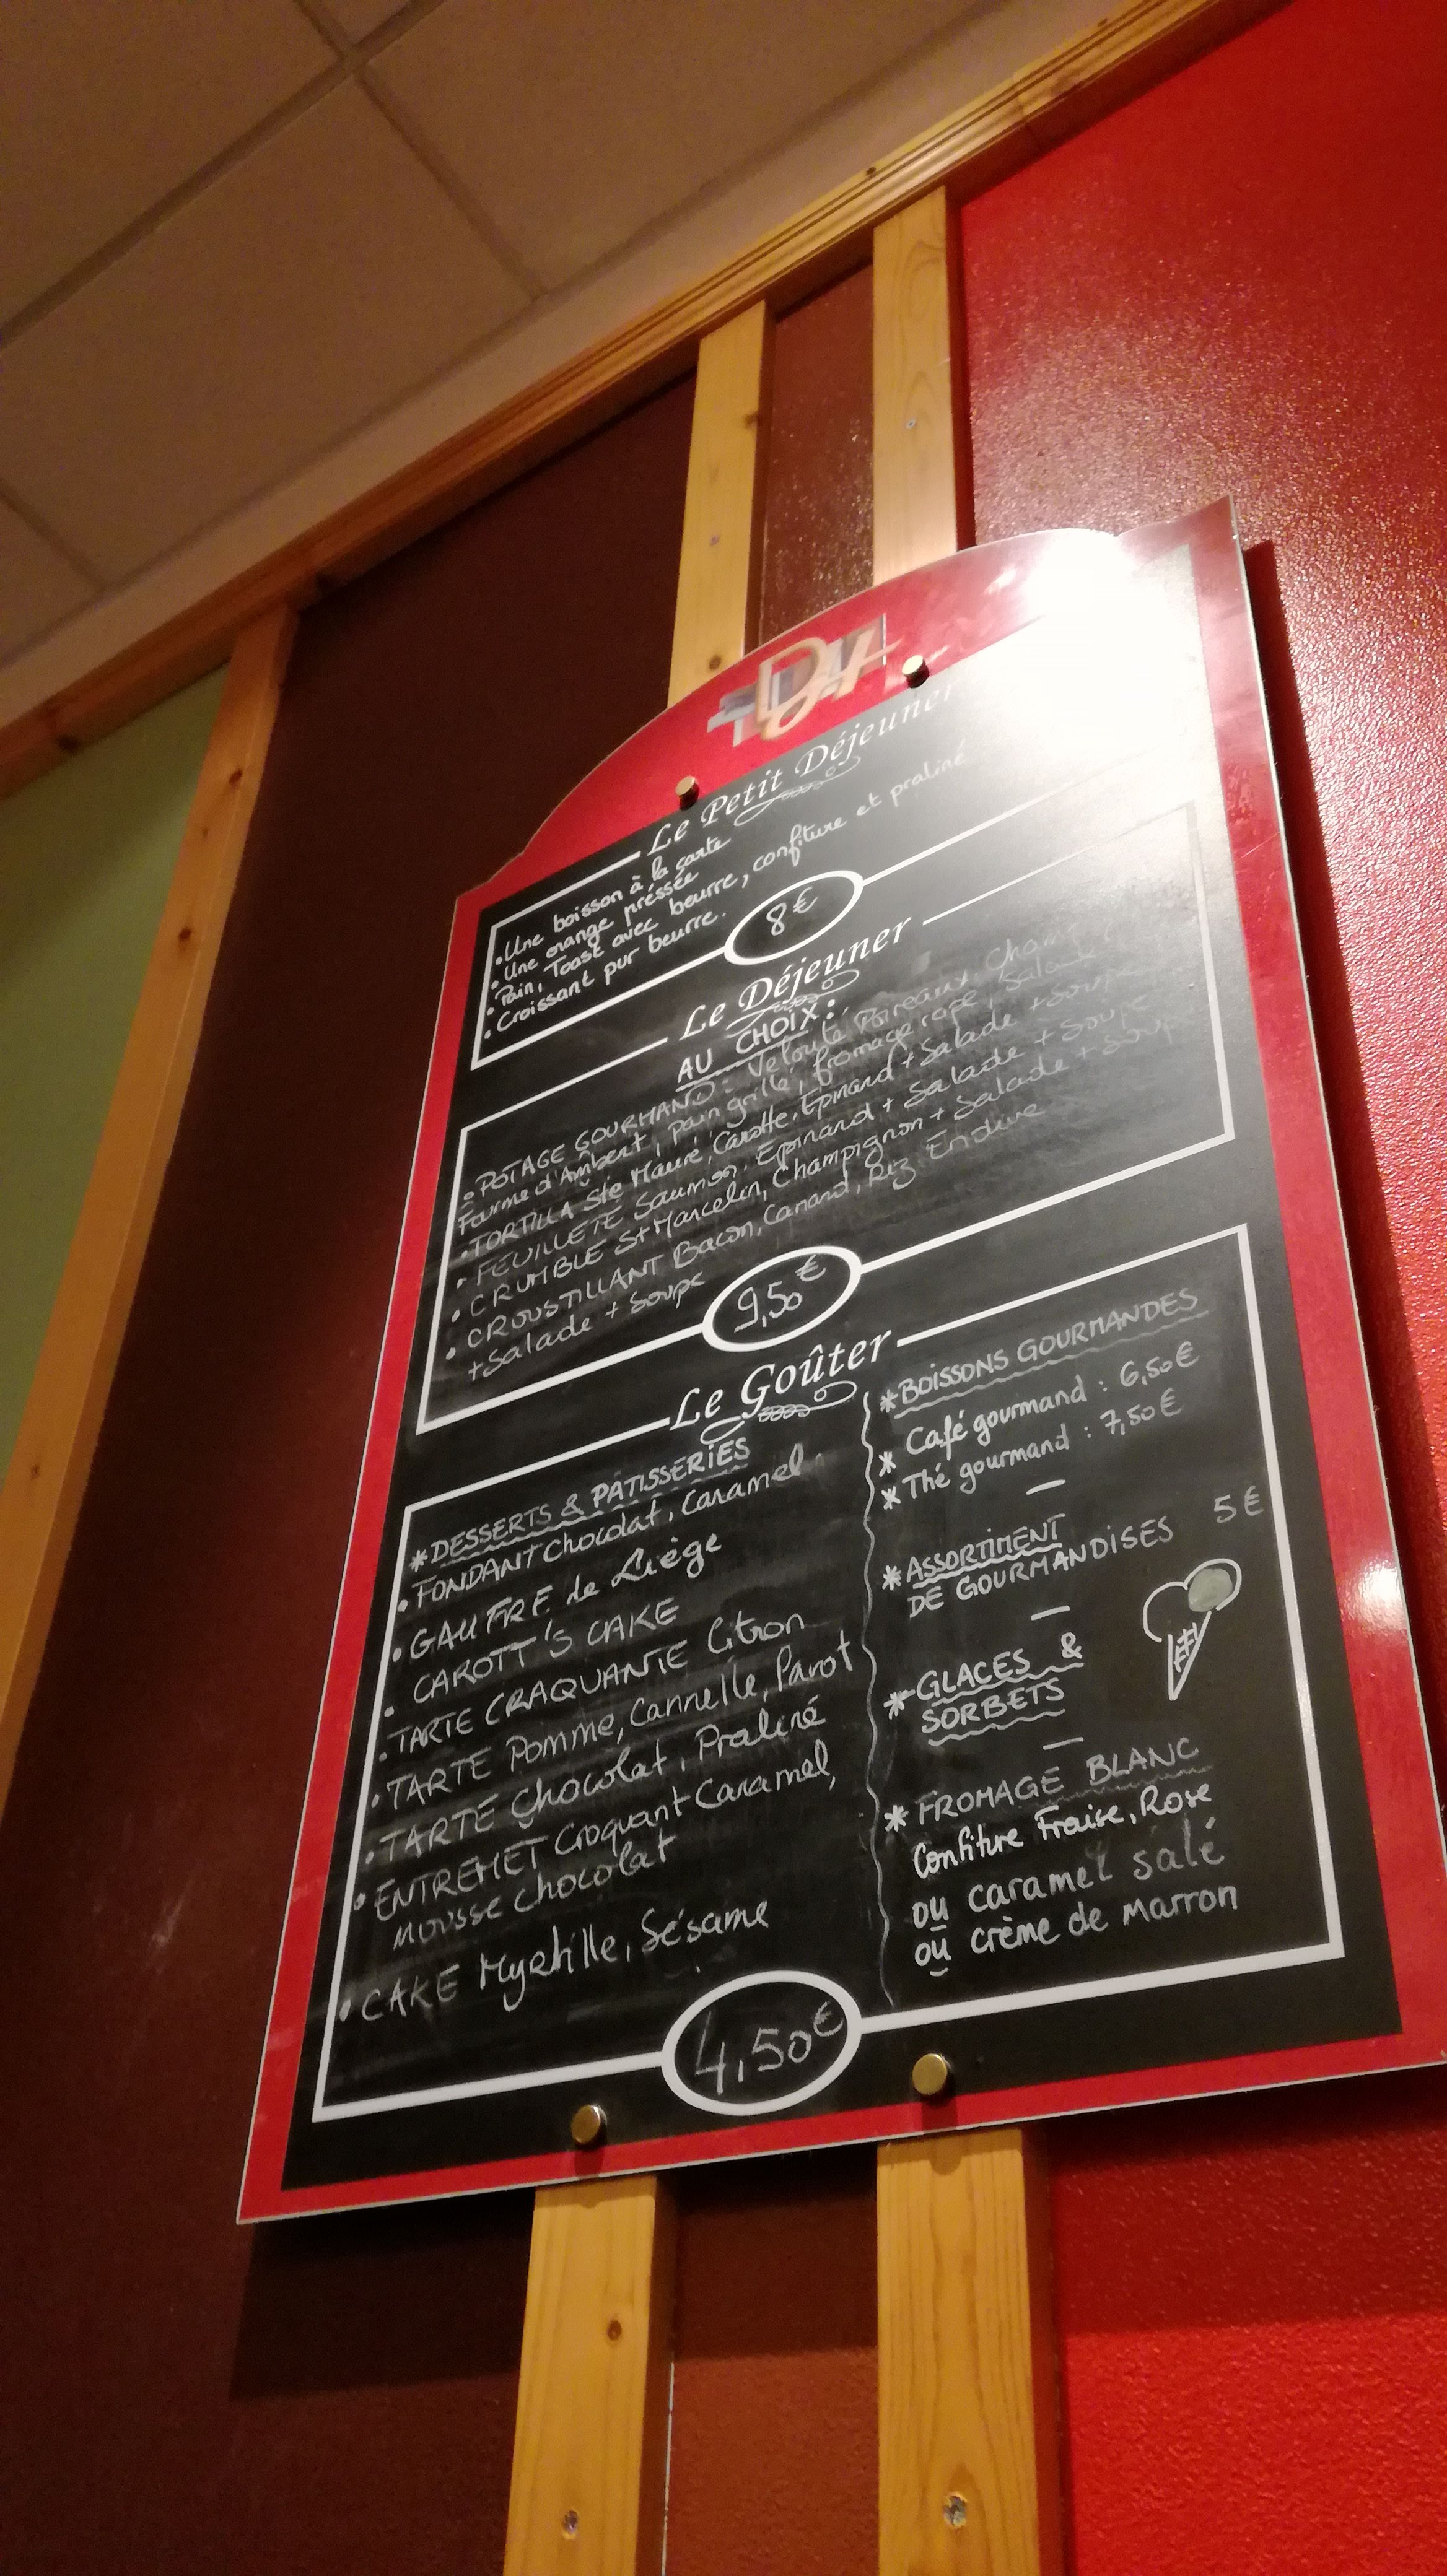 Le Petit Déjeuner
• Une boisson à la carte
• Une orange préssée
• Pain, Toast avec beurre, confiture et praliné
• Croissant pur beurre.
8€
Le Déjeuner
AU CHOIX:
• POTAGE GOURMAND: Velouté Poireaux,
Fourme d'Ambert, pain grillé, fromage rapé, Salade
• TORTILLA Ste Maure, Carotte, Epinard + Salade + Soupe
• FEUILLETE Saumon, Epinard + Salade + Soupe
• CRUMBLE St Marcelin, Champignon + Salade + Soupe
• CROUSTILLANT Bacon, Canard, Riz, Endive
+ Salade + Soupe
9,50€
Le Goûter
* DESSERTS & PATISSERIES
• FONDANT Chocolat, Caramel.
• GAUFRE de Liège
• CAROTT'S CAKE
• TARTE CRAQUANTE Citron
• TARTE Pomme, Cannelle, Pavot
• TARTE Chocolat, Praliné
• ENTREMET Croquant Caramel,
mousse Chocolat
• CAKE Myrtille, Sésame
* BOISSONS GOURMANDES
* Café gourmand : 6,50€
* Thé gourmand : 7,50€
* ASSORTIMENT
DE GOURMANDISES 5€
* GLACES &
SORBETS
* FROMAGE BLANC
Confiture Fraise, Rose
ou caramel salé
ou crème de marron
4,50€